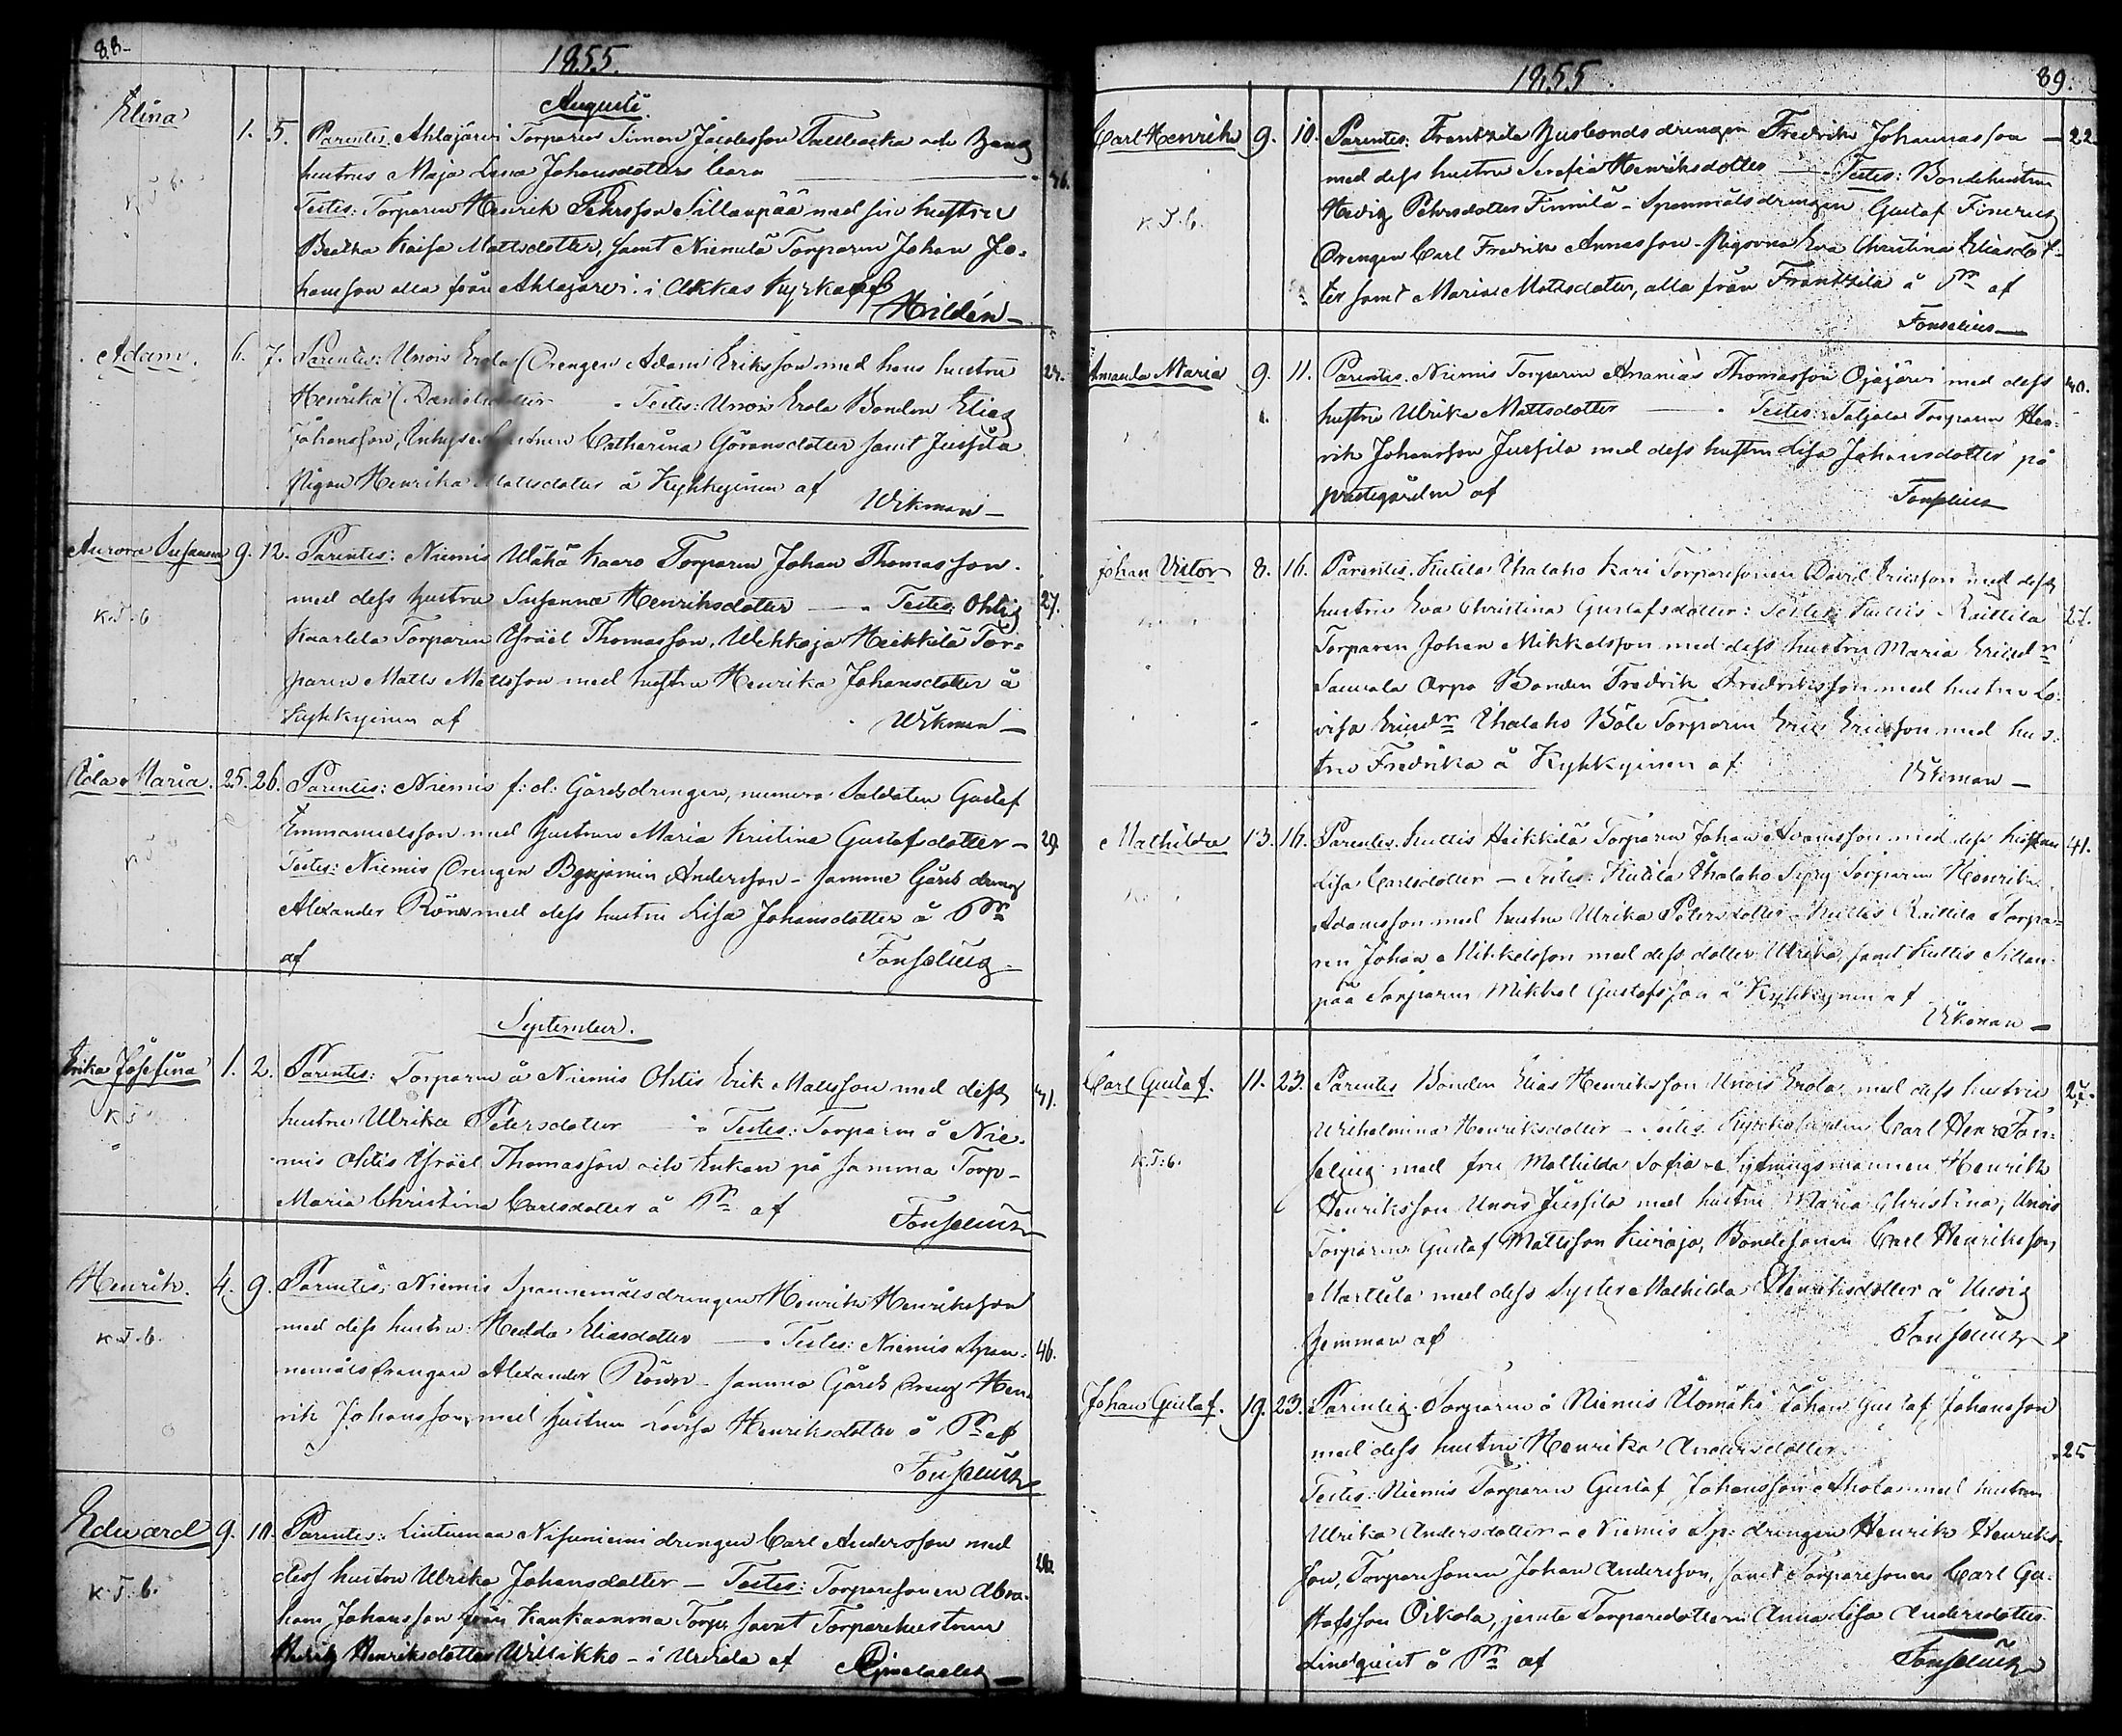 88.
1855.
Augusti.
Elina 1. 5. Parentes: Ahlajärvi Torparen Simon Jacobsson Tallbacka och hans
hustrus Maja Lena Johansdotters barn 36.
Testes: Torparen Henrik Pehrsson Sillanpää med sin hustru
Beatha Kaisa Mattsdotter, samt Niemelä Torparen Johan Jo-
hansson alla från Ahlajärvi i Akkas kyrka af
Hildén
Adam. 6. 7. Parentes: Unois Erola Drengen Adam Eriksson med hans hustru 27.
Henrika Danielsdotter Testes: Unois Erola Bonden Elias
Johansson, Inhyses hustrun Catharina Göransdotter samt Jussila
Pigan Henrika Mattsdotter å Kylkkyinen af
Wikman
Aurora Susanna 9. 12. Parentes: Niemis Wähä Kaaro Torparen Johan Thomasson
med dess hustru Susanna Henriksdotter Testes: Ohtis 27.
K.T.6.
Kaarlela Torparen Israël Thomasson, Heikkilä Tor-
paren Matts Mattsson med hustru Henrika Johansdotter å
Kylkkyinen af Wikman
Ida Maria. 25. 26. Parentes: Niemis f:d: Gårdsdrengen, numera Soldaten Gustaf
Emmanuelsson med hustrun Maria Kristina Gustafsdotter 29.
Testes: Niemis Drengen Benjamin Andersson - samma Gårds dreng
Alexander Rönn med dess hustru Lisa Johansdotter å Pr:n
af Fonselius
September.
Erika Josefina 1. 2. Parentes: Torparen å Niemis Ohtis Erik Mattsson med dess 31.
K T
hustru Ulrika Petersdotter Testes: Torparen å Nie-
mis Ohtis Israël Thomasson och Enkan på samma Torp
Maria Christina Carlsdotter å Pr:n af Fonselius
Henrik. 4. 9. Parentes: Niemis Spannemålsdrengen Henrik Henriksson
K.T.6.
med dess hustru Hedda Eliasdotter Testes: Niemis Span- 46.
nemåls Drengen Alexander Rönn - samma Gårds Dreng Hen-
rik Johansson, med hustrun Lovisa Henriksdotter å Pr:n af
Fonselius
Edward 9. 10. Parentes: Liuttumaa Nisuniemi drengen Carl Andersson med
K.T.6.
dess hustru Ulrika Johansdotter - Testes: Torparesonen Abra- 26.
ham Johansson från Kaukaanmaa Torp, samt Torparehustrun
Hedvig Henriksdotter - i Urdiala af
1855.
89.
Carl Henrik 9. 10. Parentes: Frantsila Husbondsdrengen Fredrik Johannasson 22.
med dess hustru Serefia Henriksdotter Testes: Bondehustrun
K.T.6.
Hedvig Pehrsdotter Finnilä - Spannmålsdrengen Gustaf Finerus
Drengen Carl Fredrik Annasson - Pigorna Eva Christina Eliasdot-
ter samt Maria Mattsdotter, alla från Frantsila å Pr:n af
Fonselius
Amanda Maria 9. 11. Parentes: Niemis Torparen Ananias Thomasson Ojajärvi med dess 40.
hustru Ulrika Mattsdotter Testes: Taljala Torparen Hen-
rik Johansson Jussila med dess hustru Lisa Johansdotter på
prästegården af Fonselius
Johan Victor 8. 16. Parentes: Kutila Uhalaho Kari Torparesonen David Ericsson med dess
hustru Eva Christina Gustafsdotter: Testes: Kullis Raittila 27.
Torparen Johan Mikkelsson med dess hustru Maria Ericsd:r
Saurala Arpo Bonden Fredrik Fredriksson med hustru Lo-
visa Ericsd:r Uhalaho Böle Torparen Eric Ericsson med hus-
tru Fredrika å Kylkkyinen af Wikman
Mathilda 13. 16. Parentes: Kullis Heikkilä Torparen Johan Adamsson med dess hustru 41.
Lisa Carlsdotter - Testes: Kutila Uhalaho Torparen Henrik
Adamsson med hustru Ulrika Petersdotter - Kullis Raittila Torpa-
ren Johan Mikkelsson med dess dotter Ulrika, samt Kullis Sillan-
pää Torparen Mikkel Gustafsson å Kylkkyinen af
Wikman
Carl Gustaf. 11. 23. Parentes: Bonden Elias Henriksson Unois Erola med dess hustru 27.
Wilhelmina Henriksdotter - Testes: Carl Henr: Fon-
K.T.6.
selius med fru Mathilda Sofia - Sytningsmannen Henrik
Henriksson Unois Jussila med hustru Maria Christina, Unois
Torparen Gustaf Mattsson Kuivajo, Bondesonen Carl Henriksson
Marttila med dess Syster Mathilda Henriksdotter å Unois
hemman af Fonselius
Johan Gustaf. 19. 23. Parentes: Torparen å Niemis Ylömäki Johan Gustaf Johansson
med dess hustru Henrika Andersdotter 25
Testes: Niemis Torparen Gustaf Johansson Ahola med hustrun
Ulrika Andersdotter - Niemis Sp: drengen Henrik Henriks-
son, Torparesonen Johan Andersson, samt Torparesonen Carl Gu-
stafsson Oikola, jemte Torparedottren Anna Lisa Andersdotter
Lindqvist å Pr:n af Fonselius